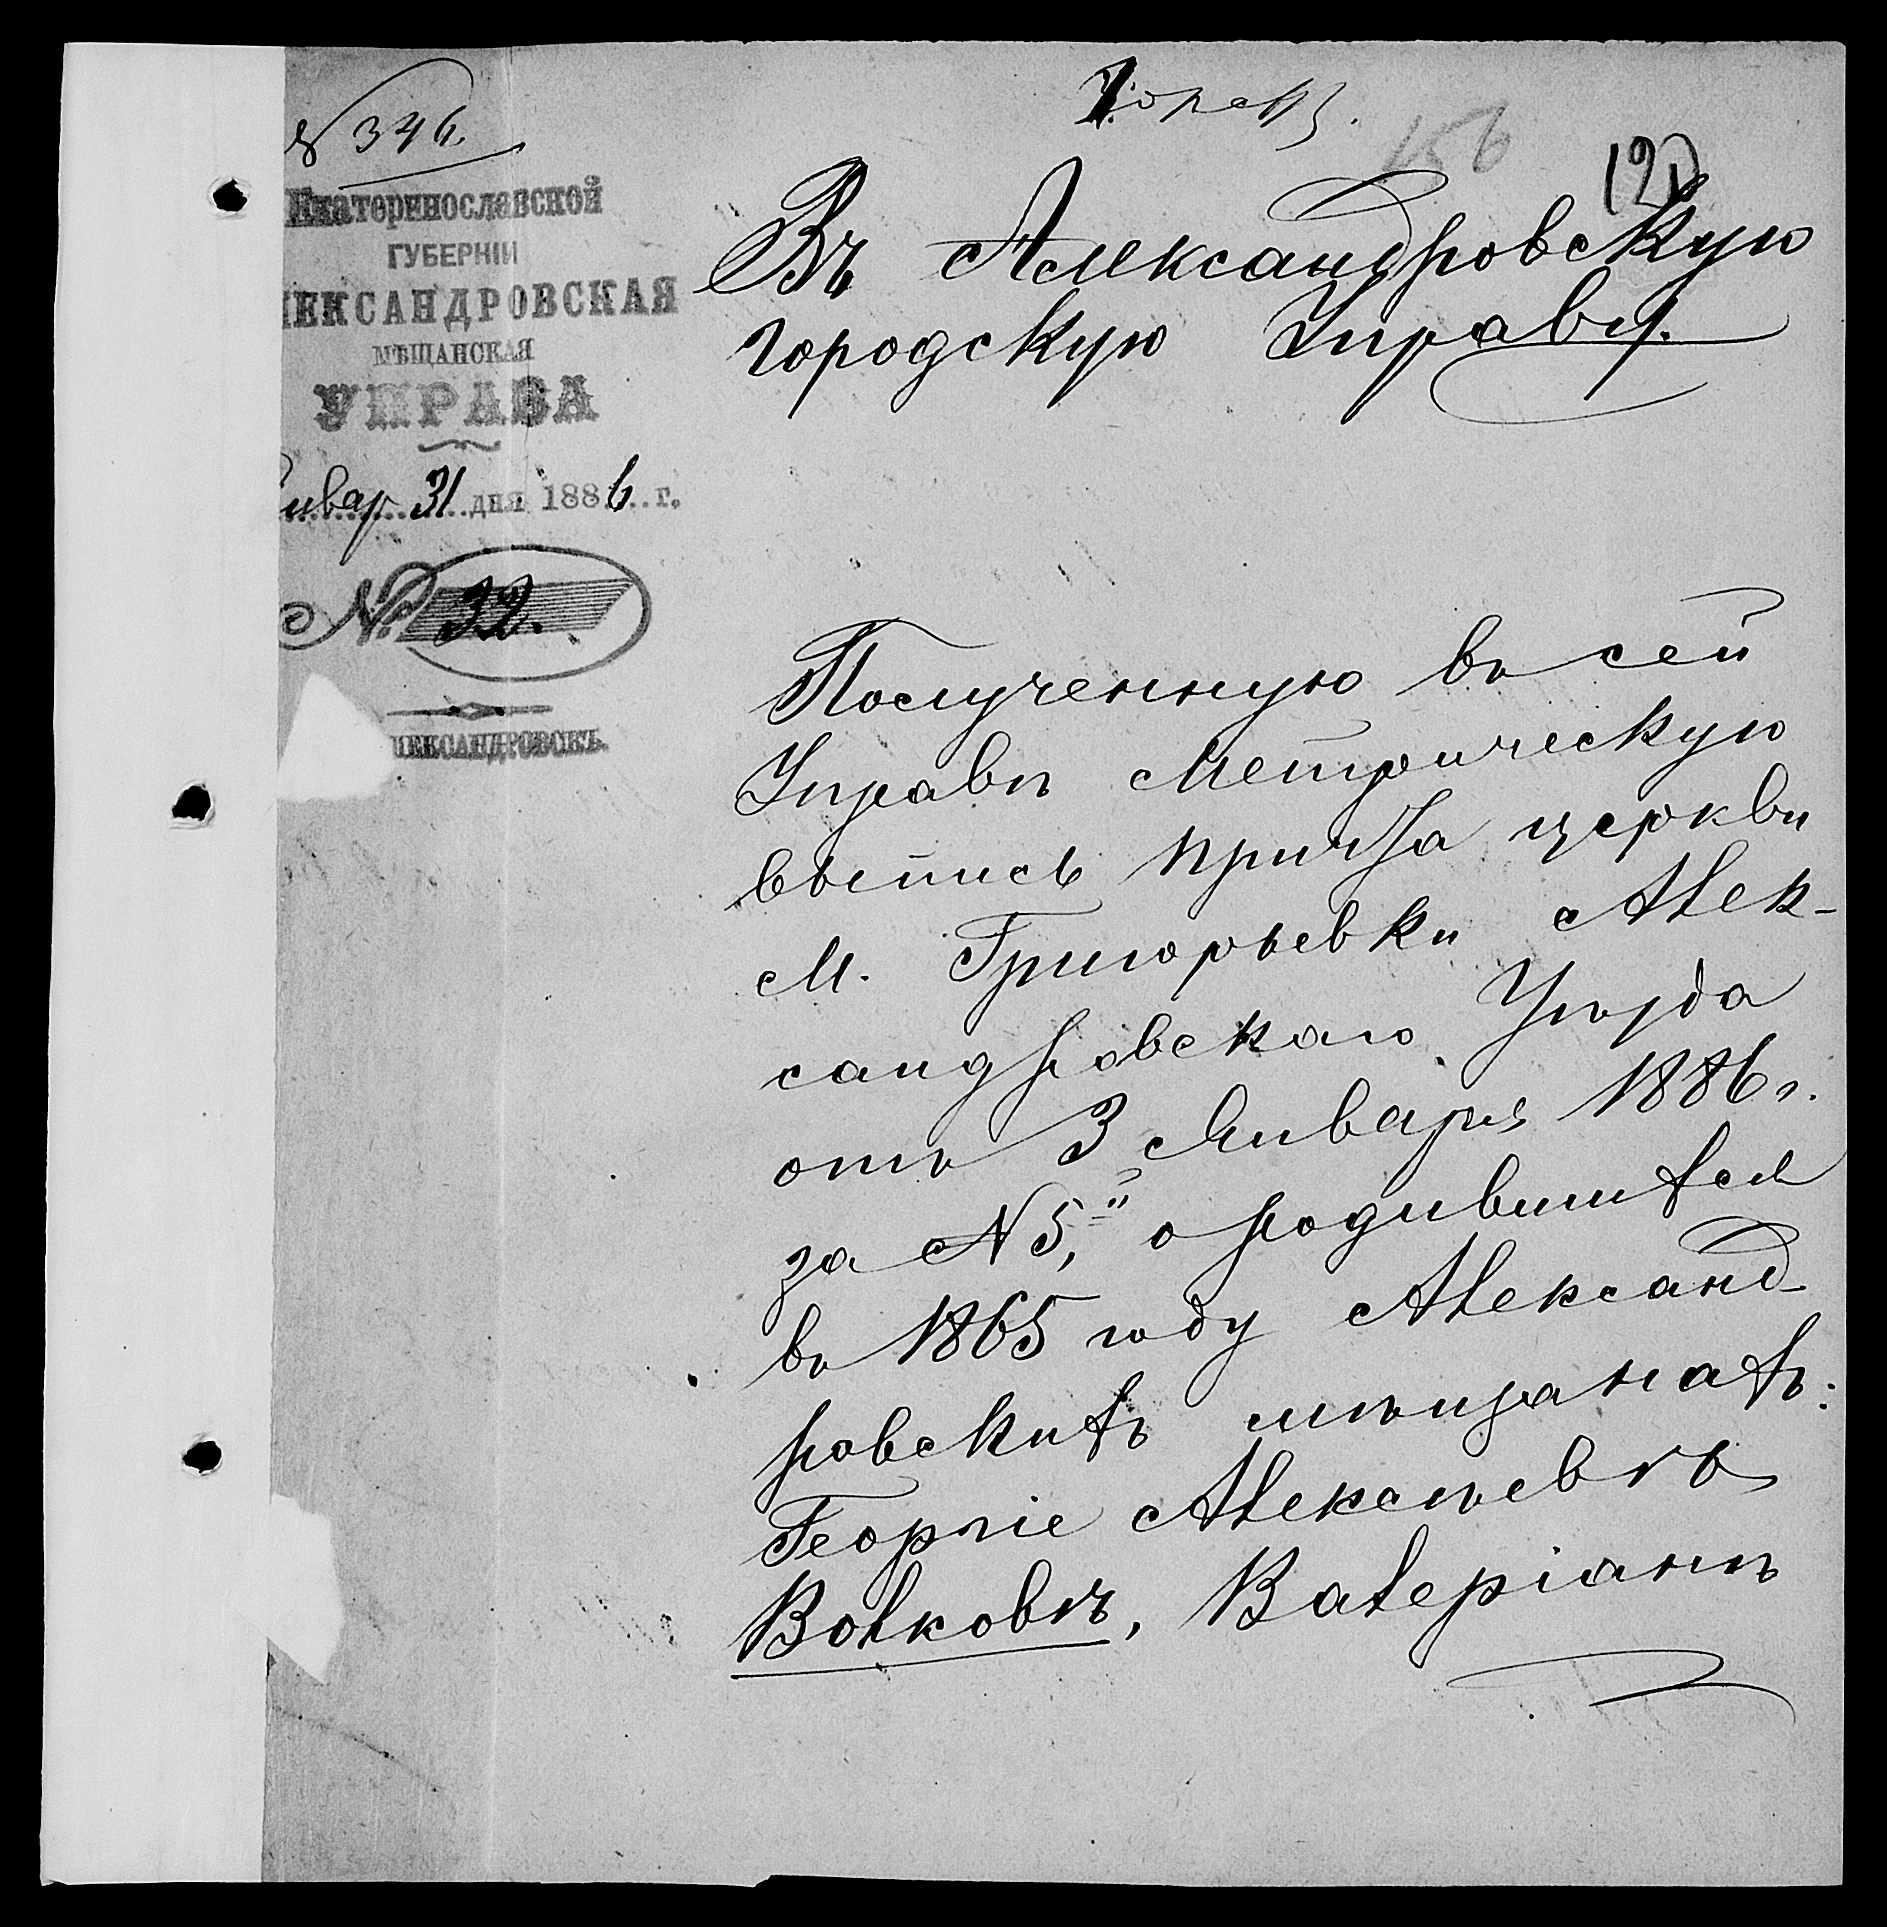 № 346.
156
Екатеринославской
ГУБЕРНІИ
ЛЕКСАНДРОВСКАЯ
МѢЩАНСКАЯ
УПРАВА
Январ 31 дня 1886 г.
№ 32.
ЛЕКСАНДРОВСКЪ.
Въ Александровскую
городскую Управу.
Полученную въ сей
Управѣ метрическую
выпись причта церкви
м. Григорьевки Алек-
сандровскаго Уѣзда
отъ 3 Января 1886 г.
за № 5, о родившихся
въ 1865 году Александ-
ровскихъ мѣщанахъ:
Георгіе Алексѣевѣ
Волковѣ, Валеріанѣ